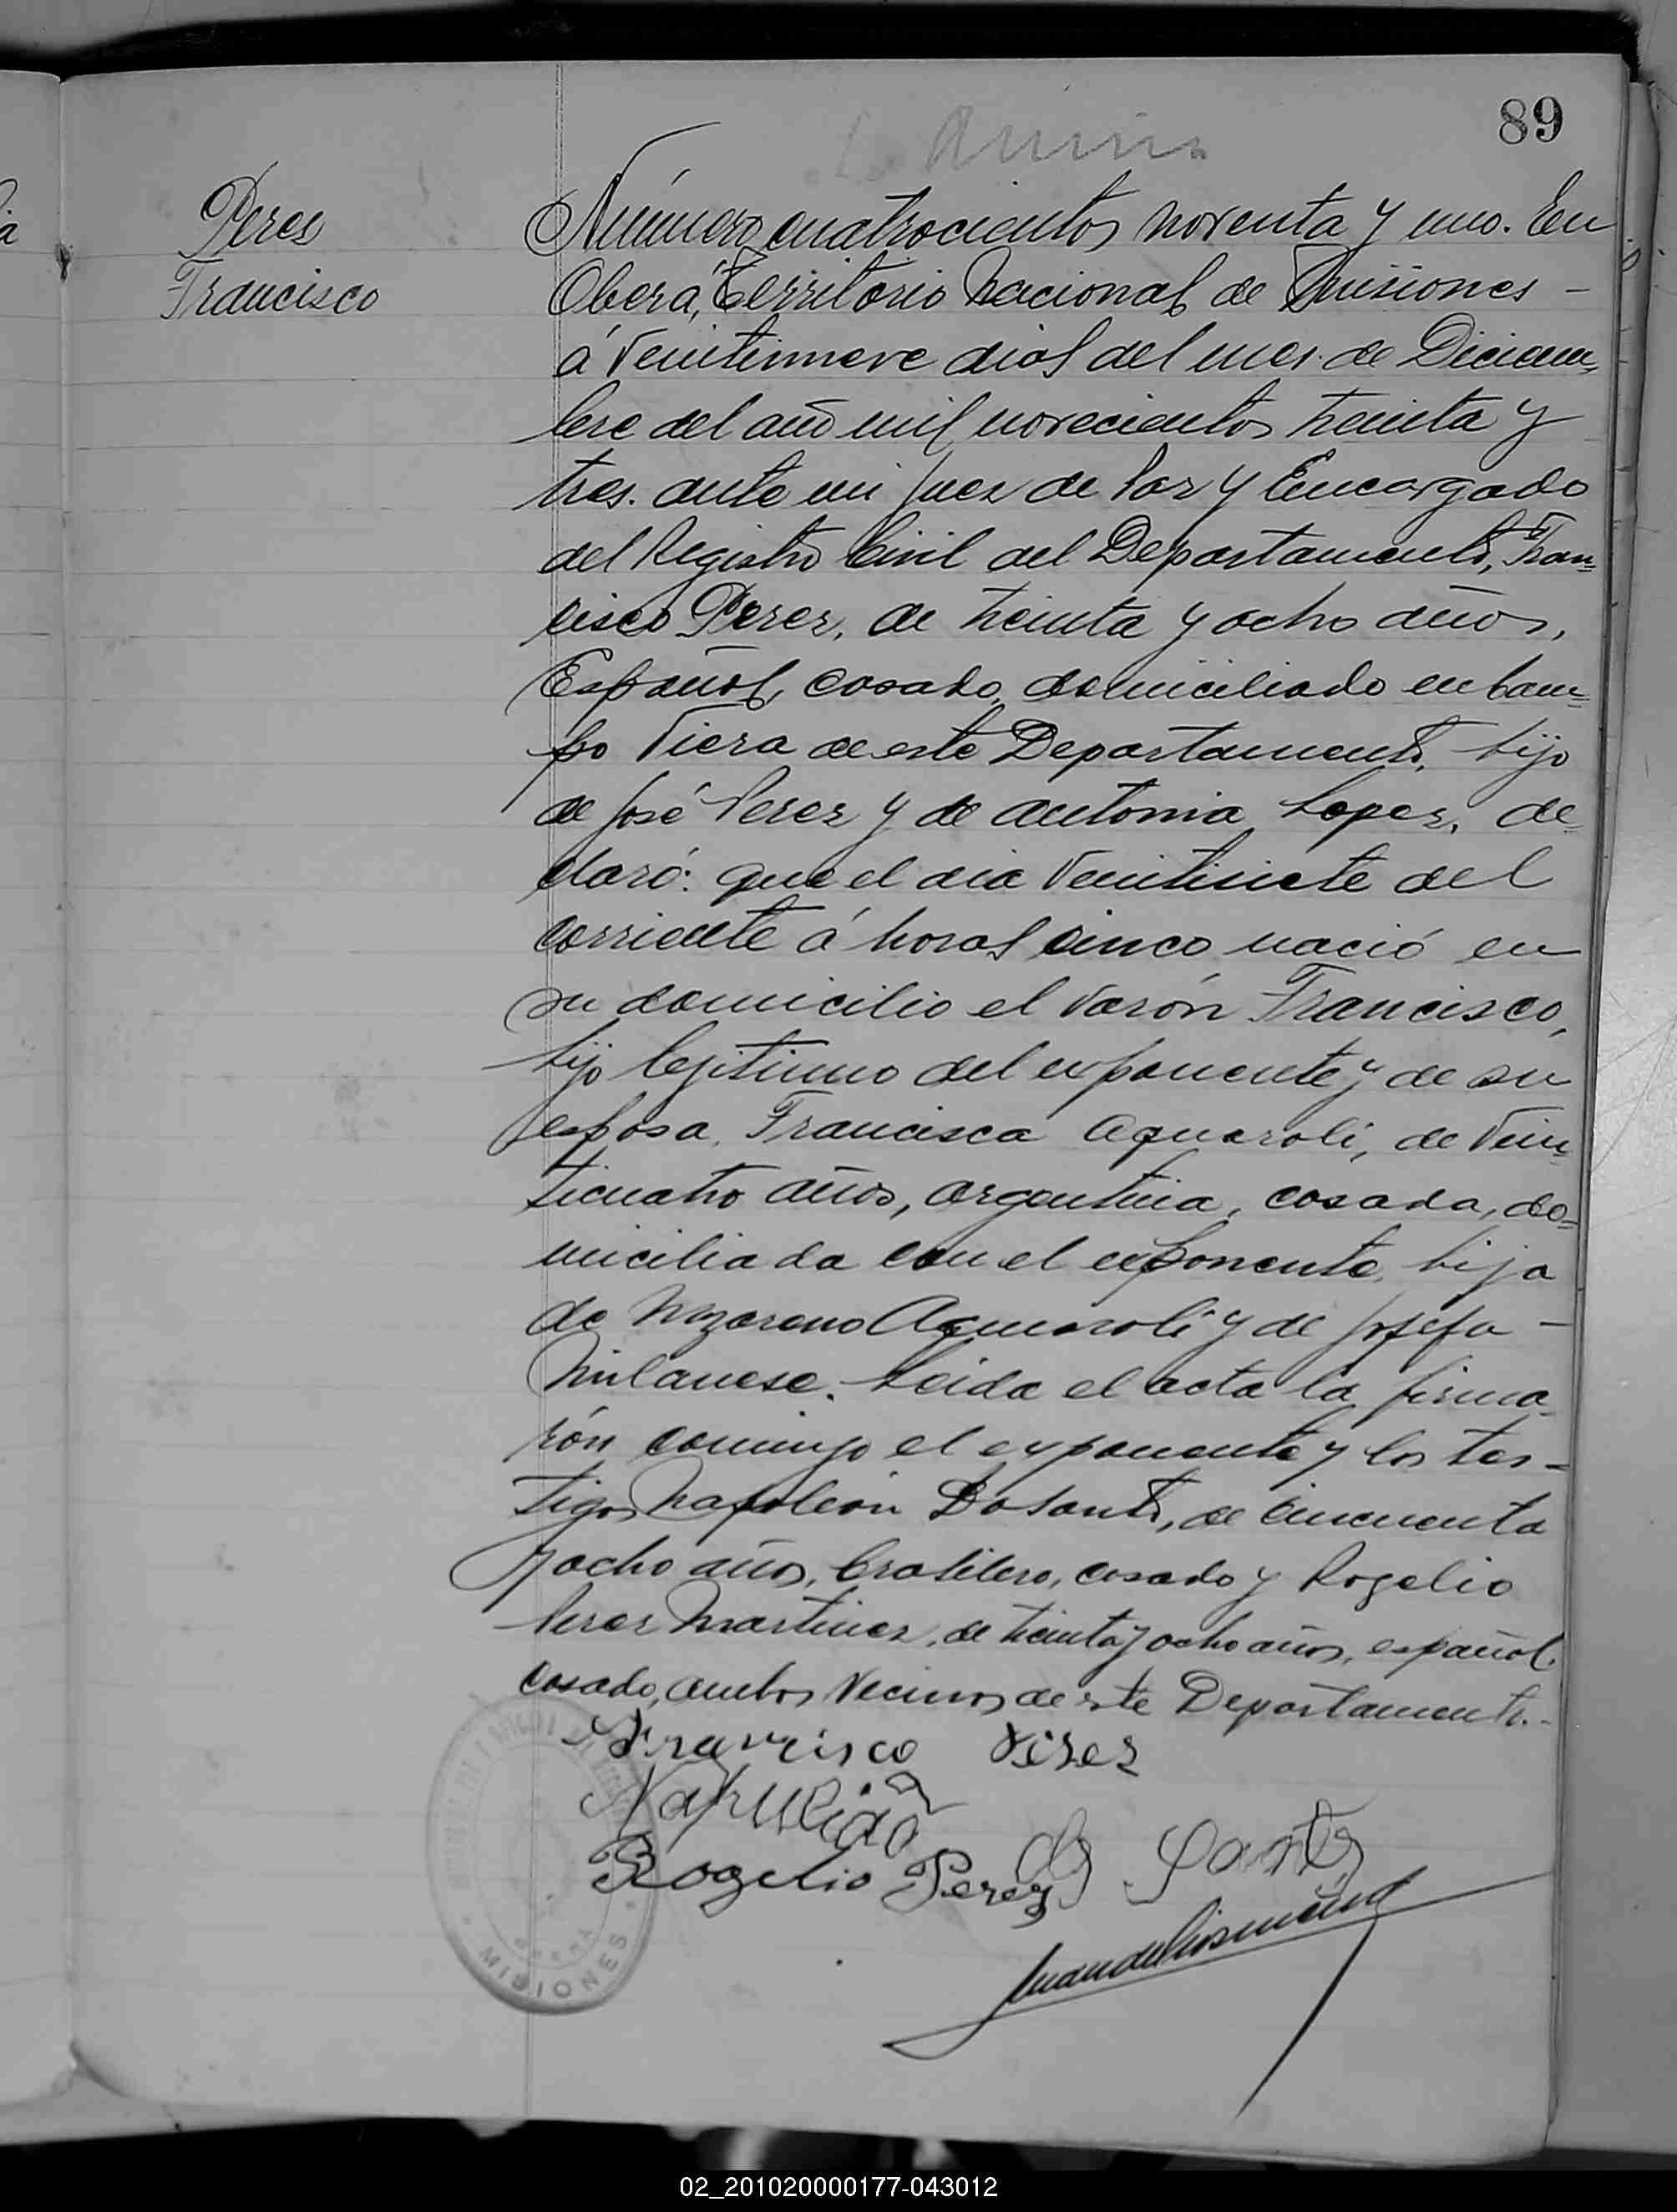 89
Peres
Francisco
Número cuatrocientos noventa y uno. En
Oberá, Territorio Nacional de Misiones -
á Veintinueve dias del mes de Diciem=
bre del año mil novecientos treinta y
tres. ante mi Juez de Paz y Encargado
del Registro Civil del Departamento, Fran=
cisco Perez, de treinta y ocho años,
Español, casado, domiciliado en Cam=
po Viera de este Departamento, hijo
de José Perez y de Antonia Lopez, de=
claró: que el dia Veintisiete del
corriente á horas cinco nació en
su domicilio el varón Francisco,
hijo legitimo del exponente y de su
esposa, Francisca Aquaroli, de Vein=
ticuatro años, argentina, casada, do=
miciliada con el exponente, hija
de Nazareno Aquaroli y de Josefa -
Milanese. Leida el acta la firma=
rón conmigo el exponente y los tes=
tigos Napoleón Dosanto, de cincuenta
y ocho años, brasilero, casado y Rogelio
Perez Martinez, de treinta y ocho años, español,
casado, ambos vecinos de este Departamento.-
Francisco Pérez
Napulião
do Santo
Rogelio Perez
MISIONES
02_201020000177-043012